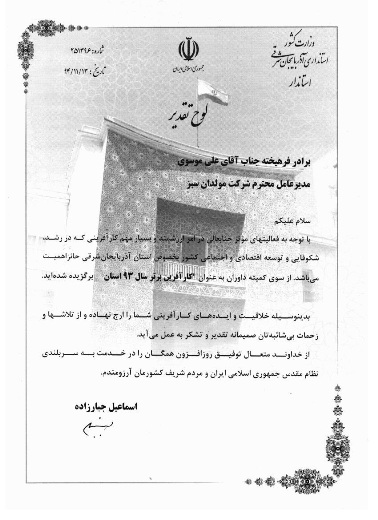 وزارت کشور
استانداری آذربایجان شرقی
استاندار
جمهوری اسلامی ایران
شماره: ۲۵۱۳۹۶
تاریخ: ۹۴/۱۱/۱۲
لوح تقدیر
برادر فرهیخته جناب آقای علی موسوی
مدیرعامل محترم شرکت مولدان سبز
سلام علیکم
با توجه به فعالیتهای مؤثر جنابعالی در امر ارزشمند و بسیار مهم کارآفرینی که در رشد،
شکوفایی و توسعه اقتصادی و اجتماعی کشور بخصوص استان آذربایجان‌شرقی حائزاهمیت
می‌باشد. از سوی کمیته داوران به عنوان "کارآفرین برتر سال ۹۳ استان" برگزیده شده‌اید.
بدینوسیله خلاقیت و ایده‌های کارآفرینی شما را ارج نهاده و از تلاشها و
زحمات بی‌شائبه‌تان صمیمانه تقدیر و تشکر به عمل می‌آید.
از خداوند متعال توفیق روزافزون همگان را در خدمت به سربلندی
نظام مقدس جمهوری اسلامی ایران و مردم شریف کشورمان آرزومندم.
اسماعیل جبارزاده